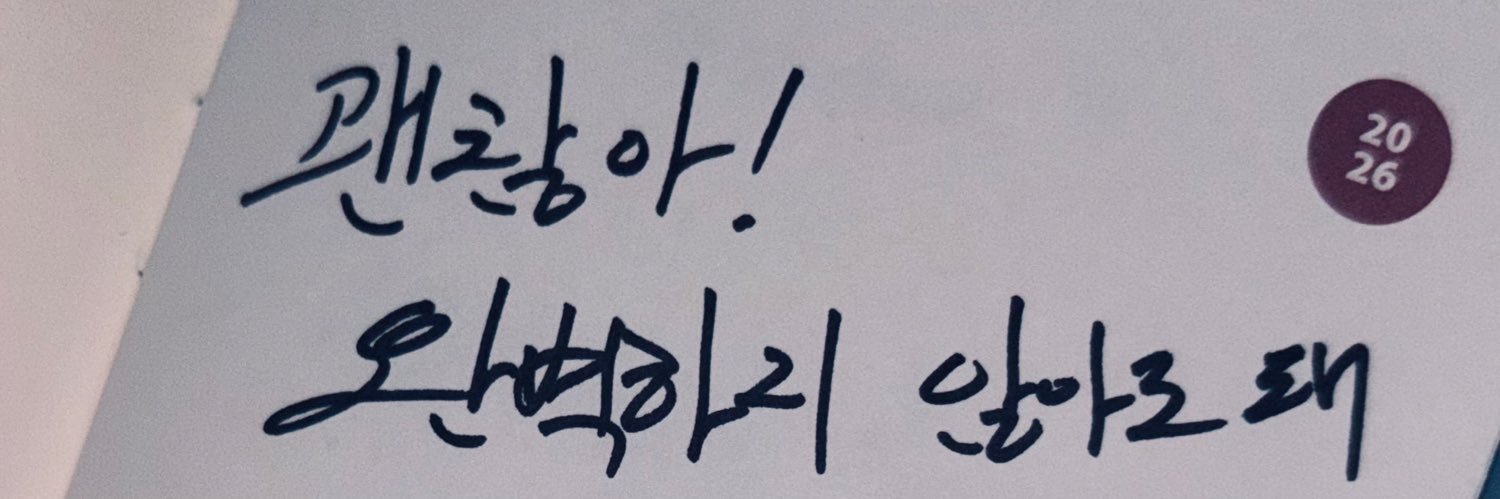 괜찮아!
20
26
완벽하지 않아도 돼